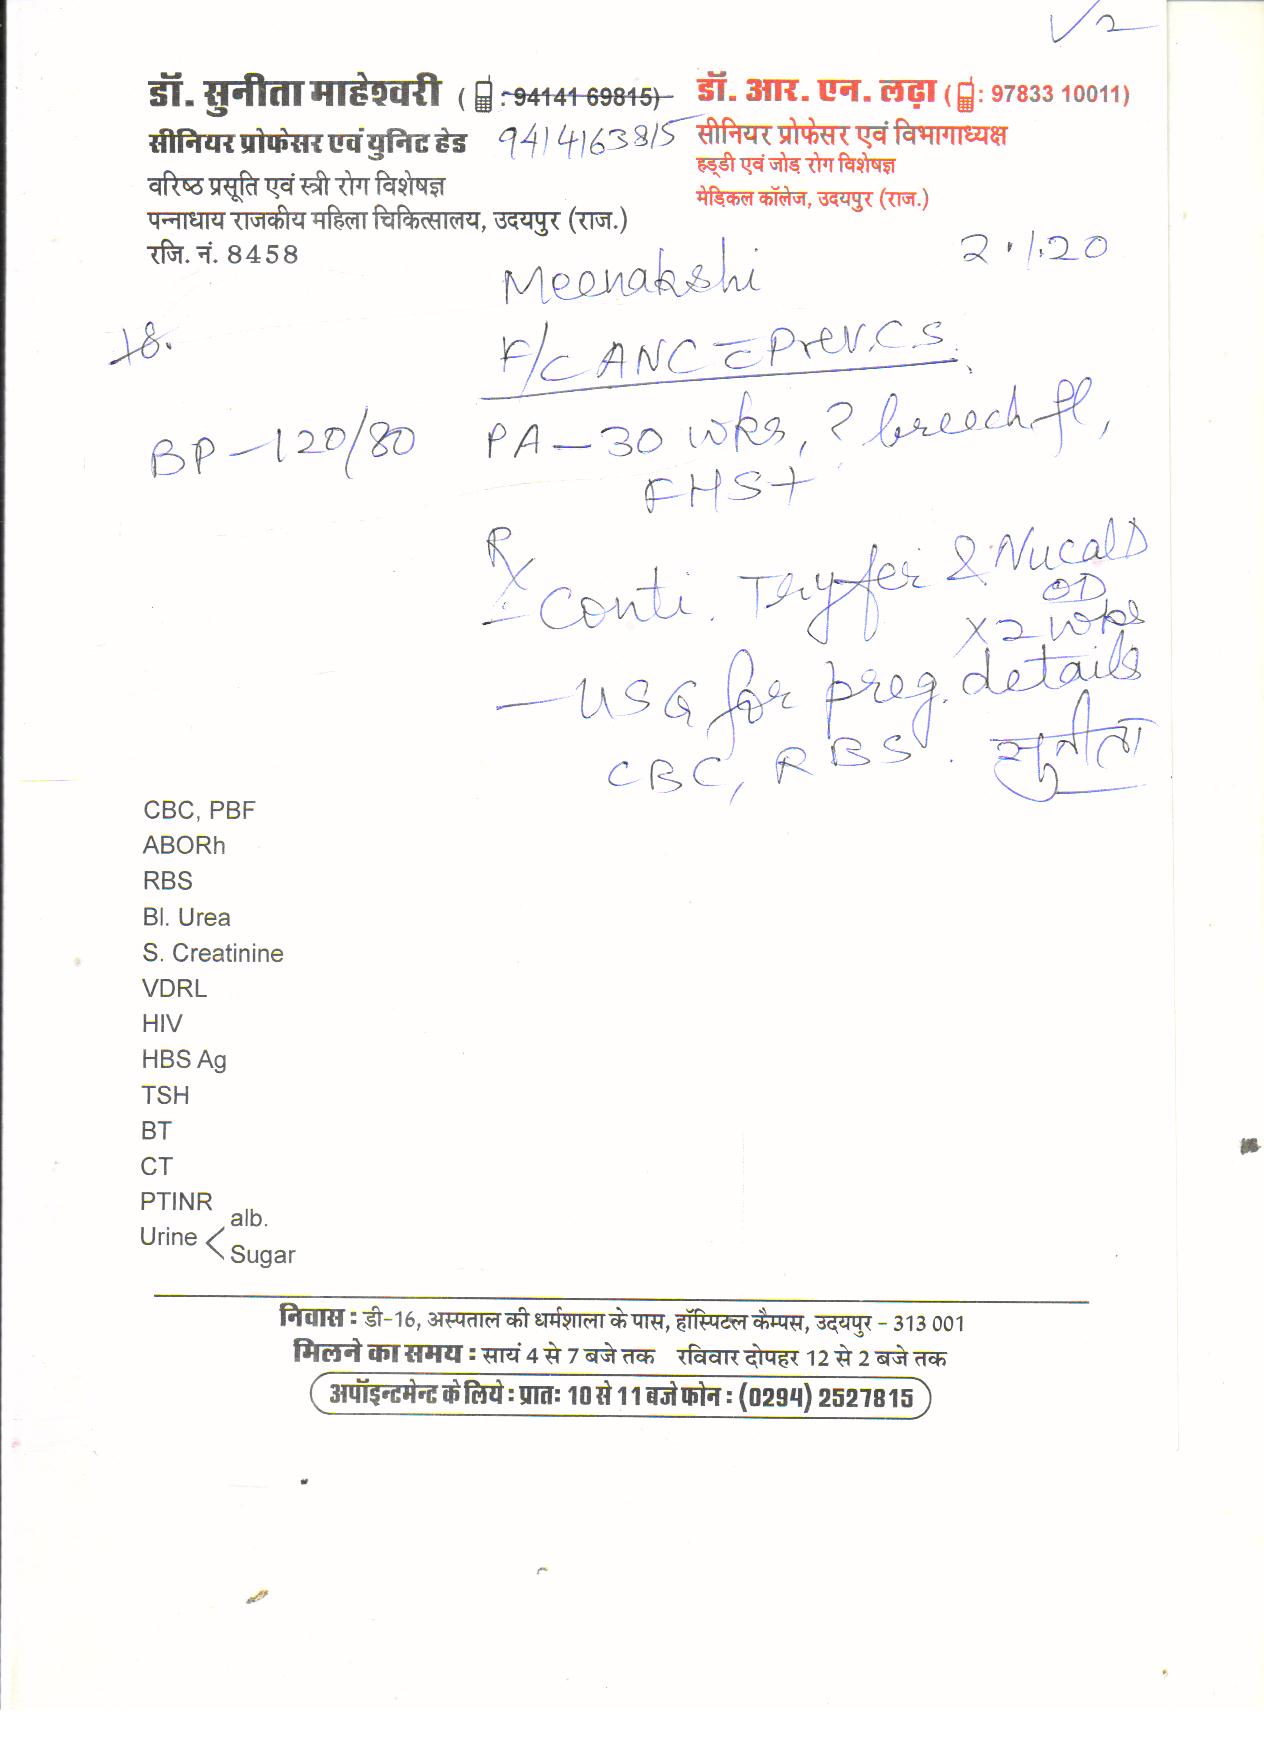 √2
डॉ. सुनीता माहेश्वरी ( : 94141 69815)
सीनियर प्रोफेसर एवं युनिट हेड 9414163815
वरिष्ठ प्रसूति एवं स्त्री रोग विशेषज्ञ
पन्नाधाय राजकीय महिला चिकित्सालय, उदयपुर (राज.)
रजि. नं. 8458
डॉ. आर. एन. लढ़ा ( : 97833 10011)
सीनियर प्रोफेसर एवं विभागाध्यक्ष
हड्डी एवं जोड़ रोग विशेषज्ञ
मेडिकल कॉलेज, उदयपुर (राज.)
2.1.20
Meenakshi
F/C ANC c̄ Prev. C.S.
BP - 120/80
PA - 30 wks, ? breech fl,
FHS+
Rx
- Conti. Tryfer & Nucal D
OD
x 2 wks
- USG for preg. details
CBC, RBS.
सुनीता
CBC, PBF
ABORh
RBS
Bl. Urea
S. Creatinine
VDRL
HIV
HBS Ag
TSH
BT
CT
PTINR
Urine < alb.
Sugar
निवास : डी-16, अस्पताल की धर्मशाला के पास, हॉस्पिटल कैम्पस, उदयपुर - 313 001
मिलने का समय : सायं 4 से 7 बजे तक रविवार दोपहर 12 से 2 बजे तक
अपॉइन्टमेन्ट के लिये : प्रातः 10 से 11 बजे फोन : (0294) 2527815